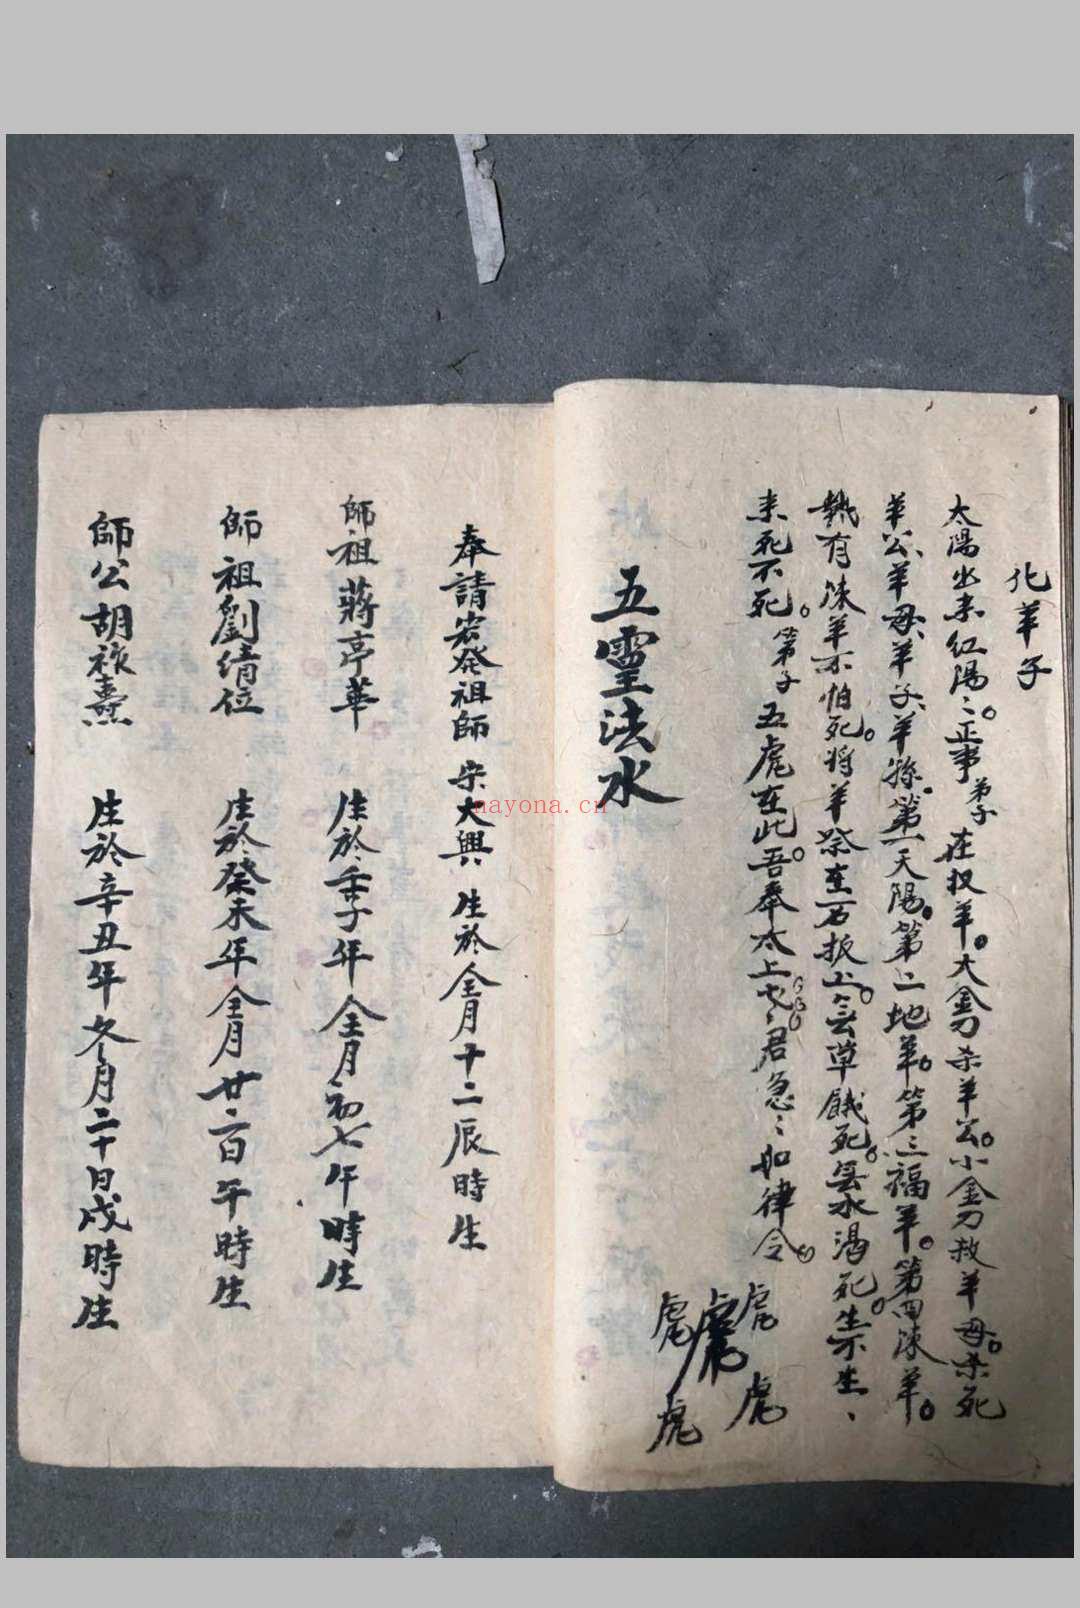 化羊子
太陽出来紅陽〻。正事弟子在杈羊。大金刀杀羊公。小金刀救羊毋。杀死
羊公、羊毋、羊子、羊孫。第一天陽。第二地羊。第三福羊。第四陳羊。
熱有陳羊不怕死。将羊祭在石板上。無草餓死。無水渴死。生不生、
来死不死。第子五虎在此。吾奉太上老〻君急〻如律令。
虎
虎
虎
虎
虎
五靈法水
奉請宏發祖師 宋大興 生於全月十二辰時生
師祖蔣亭華 生於壬子年全月初七午時生
師祖劉绪位 生於癸未年全月廿二日午時生
師公胡祿熹 生於辛丑年冬月二十日戌時生
nayona.cn